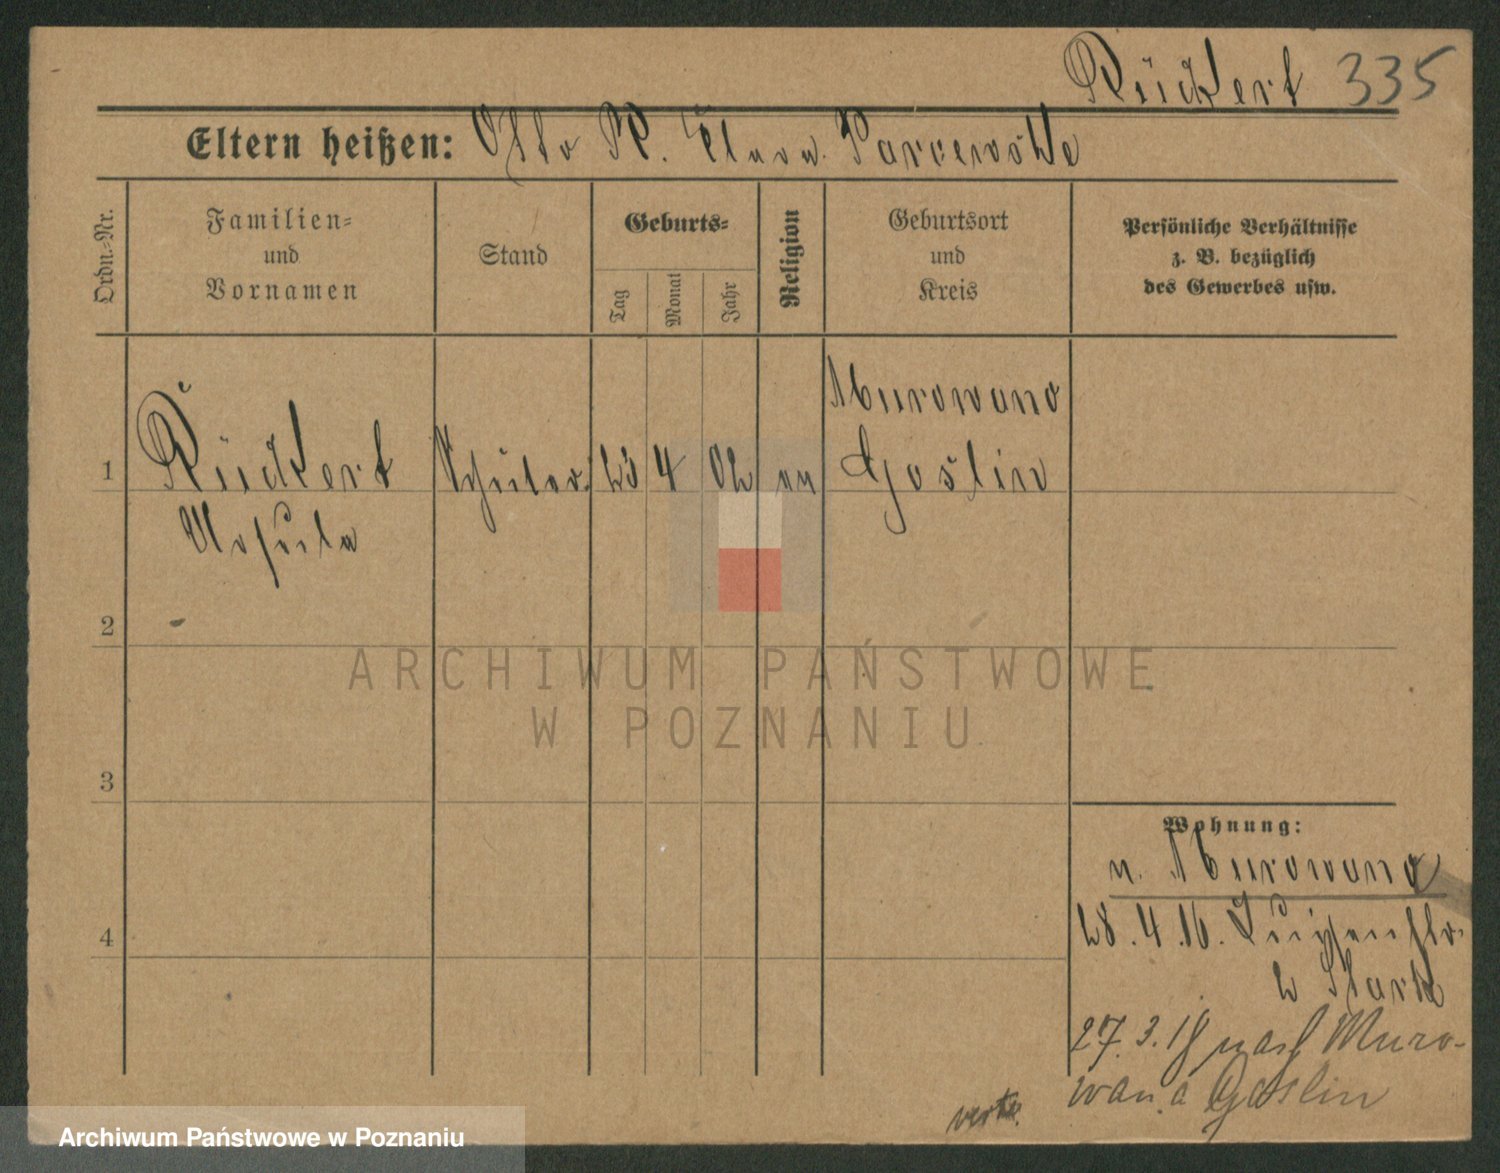 Rückert 335
Eltern heißen: Otto R. Clara
Ordn.-Nr.
Familien-
und
Vornamen
Stand
Geburts-
Tag
Monat
Jahr
Religion
Geburtsort
und
Kreis
Persönliche Verhältnisse
z. B. bezüglich
des Gewerbes usw.
Murowana
1 Rückert Schüler. 23 4 02 Goslin
Ursula
2
3
4
Wohnung:
n. Murowana
28.4.16. Luisenstr.
2
27.3.18 nach Muro-
wana Goslin
ARCHIWUM PAŃSTWOWE
W POZNANIU
Archiwum Państwowe w Poznaniu